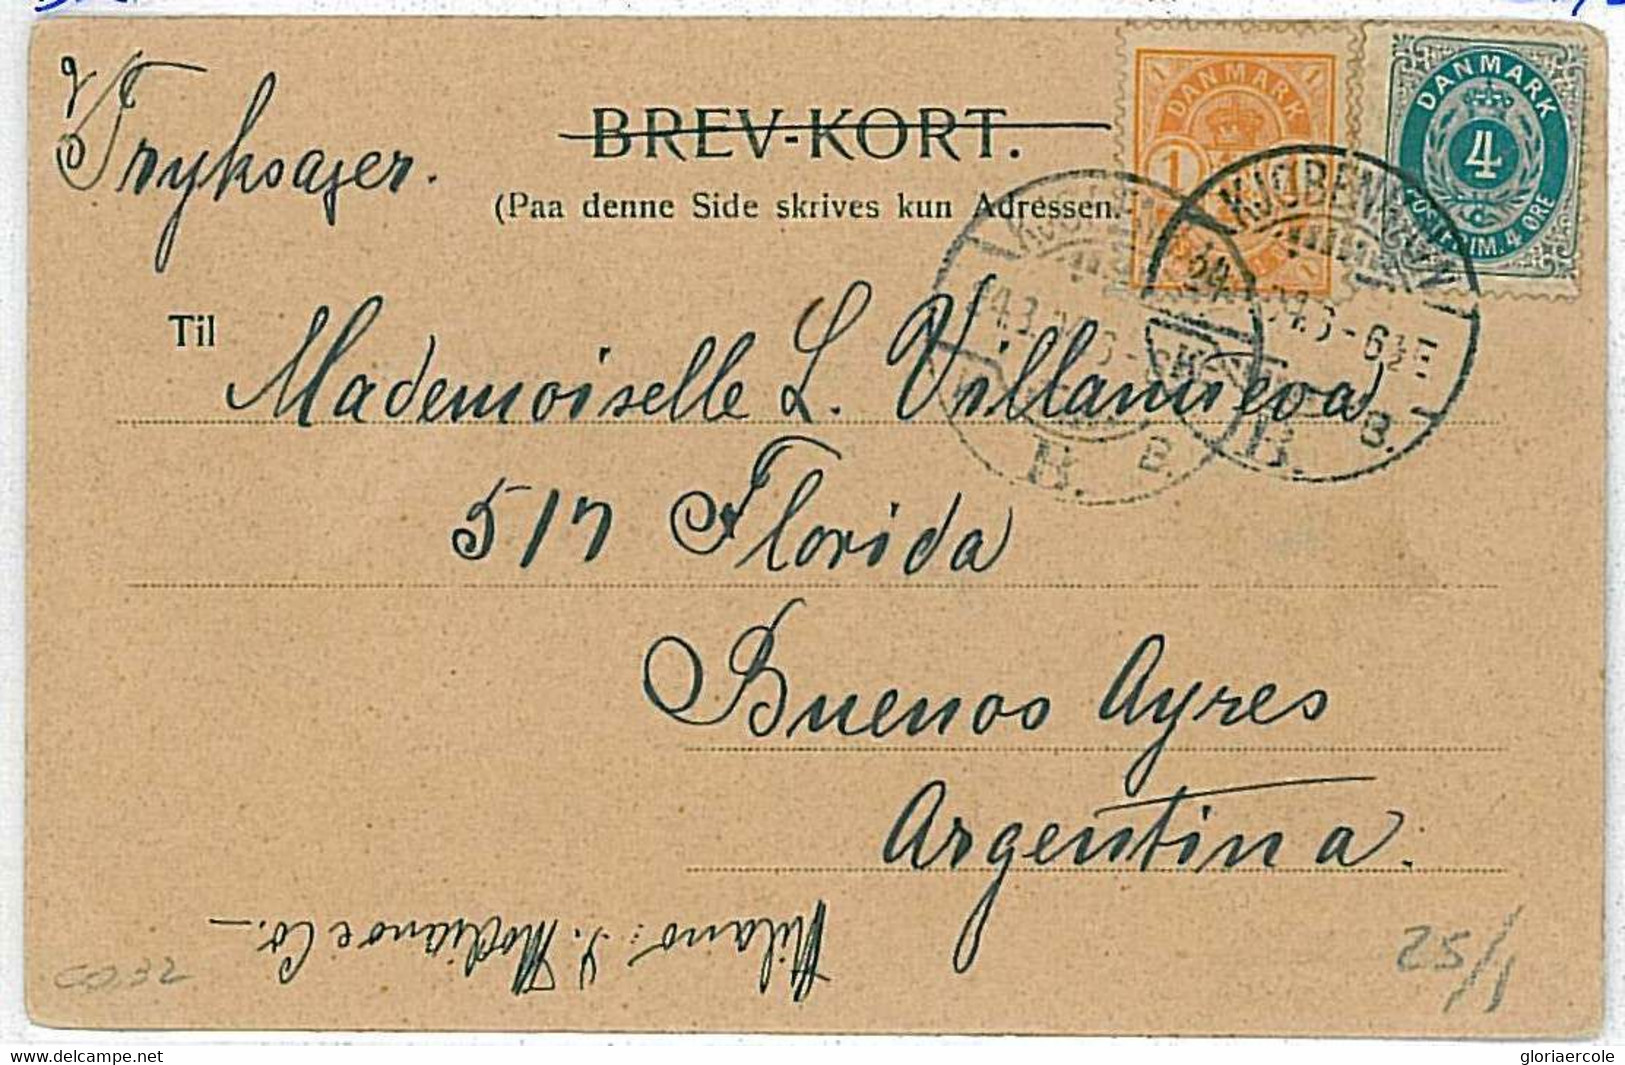 Tryksager.
BREV-KORT.
(Paa denne Side skrives kun Adressen.
1 DANMARK 1
1
DANMARK
4
POSTFRIM. 4 ØRE
KJØBENHAVN
B.
B.
KJØBENHAVN
6-6½
B.
B.
Til
Mademoiselle L. Villanueva
517 Florida
Buenos Ayres
Argentina.
Milano: S. Modiano e Co.
CO,32
25/1
delcampe.net
gloriaercole